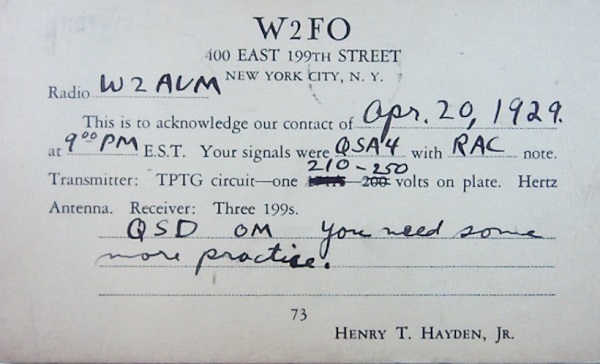 W2FO
400 EAST 199TH STREET
NEW YORK CITY, N. Y.
Radio W2AVM
This is to acknowledge our contact of Apr. 20, 1929.
at 9⁰⁰ PM E.S.T. Your signals were QSA4 with RAC note.
210-250
Transmitter: TPTG circuit—one 200 volts on plate. Hertz
Antenna. Receiver: Three 199s.
QSD OM You need some
more practise.
73
HENRY T. HAYDEN, JR.